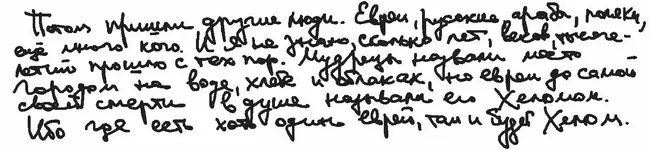 Потом пришли другие люди. Евреи, русские, арабы, поляки,
ещё много кого. И я не знаю, сколько лет, веков, тысяче-
летий прошло с тех пор. Мудрецы назвали место
городом на воде, хлебе и облаках, но евреи до самой
своей смерти в душе называли его Хеломом.
Кто где есть хоть один еврей, там и будет Хелом.